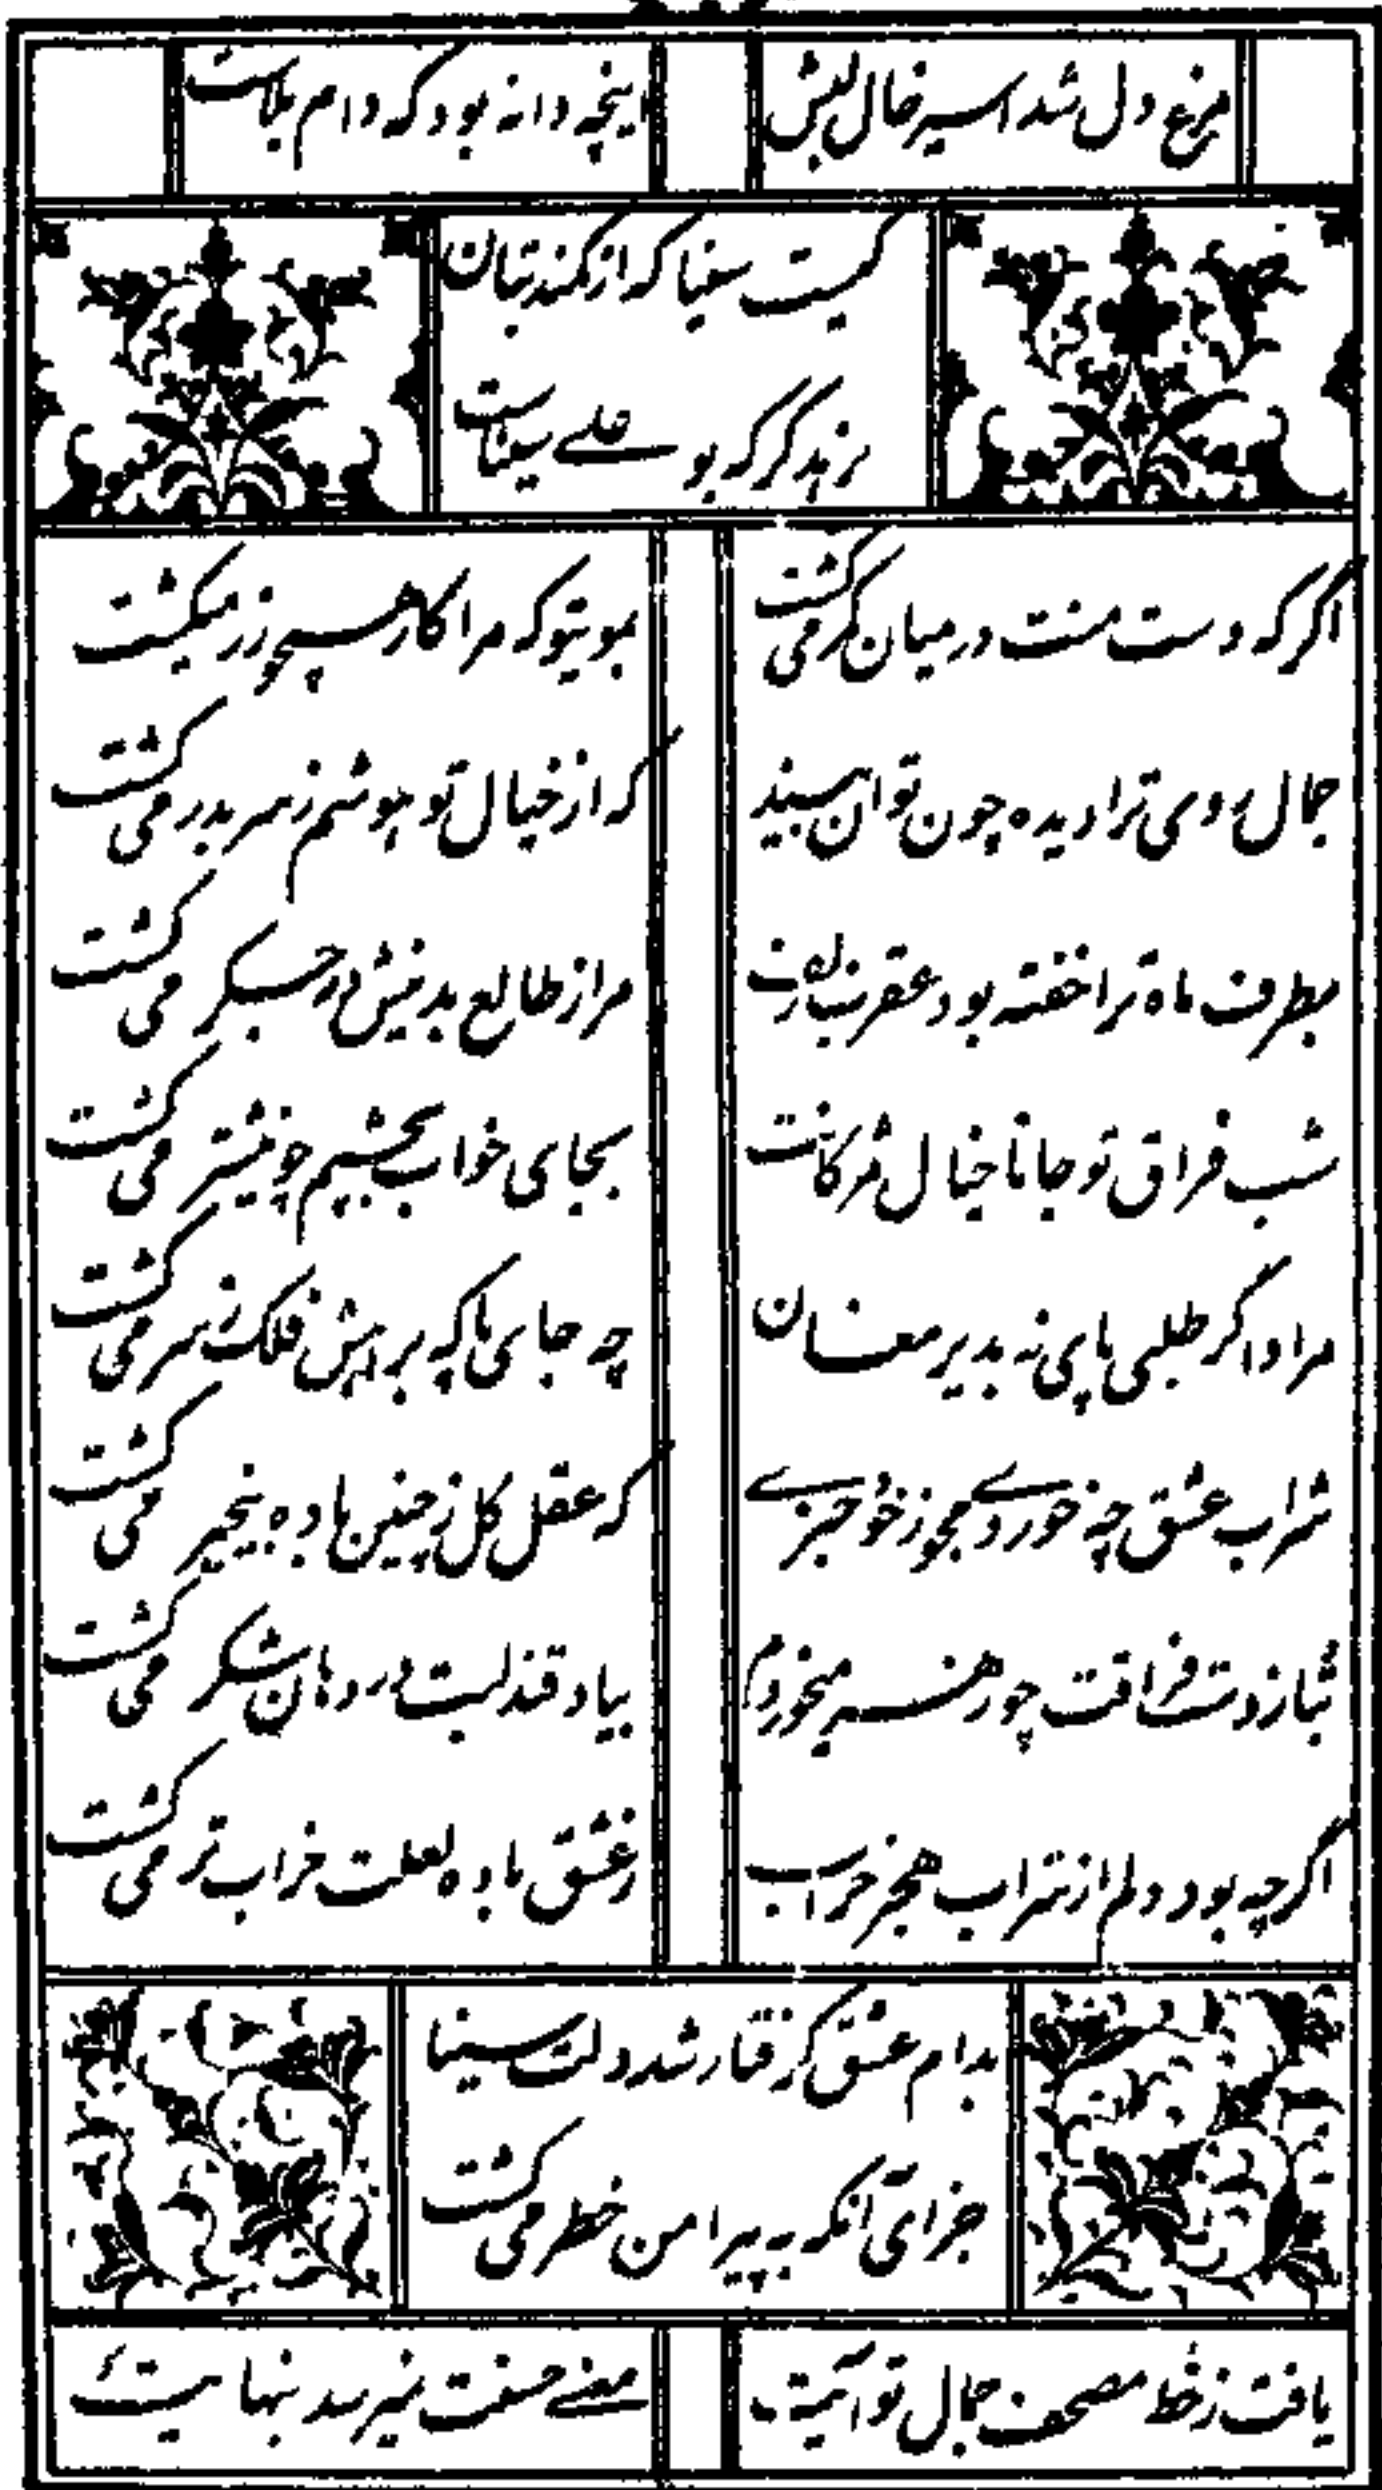 مرغ دل شد اسیر خال لبش
اینچه دانه بود که دام بلاست
کیست سینا که از کمند بتان
رهد گر که بو علے سیناست
اگر که دست منت در میان کمر می گشت
بموبتو که مرا کار همچو زر میگشت
جمال روی ترا دیده چون توان بیند
که از خیال تو هوشم ز سر بدر می گشت
بطرف ماه ترا خفته بود عقرب زلف
مرا ز طالع بد نیش در جگر می گشت
شب فراق تو جانا خیال مژگانت
بجای خواب بچشمم چو نیشتر می گشت
مراد اگر طلبی پای نه بدیر مغان
چه جای ما که براهش فلک ز سر می گشت
شراب عشق چه خوردے مجو ز خود خبرے
که عقل کل ز چنین باده بیخبر می گشت
بتا ز دست فراقت چو زهر میخوردم
بیاد قند لبت در دهان شکر می گشت
اگرچه بود دلم از شراب هجر خراب
ز عشق باده لعلت خراب تر می گشت
بدام عشق گرفتار شد دلت سینا
جزای آنکه به پیرامن خطر می گشت
یافت ز خط مصحف جمال تو آیت
معنے حسنت نمیرسد بنهایت